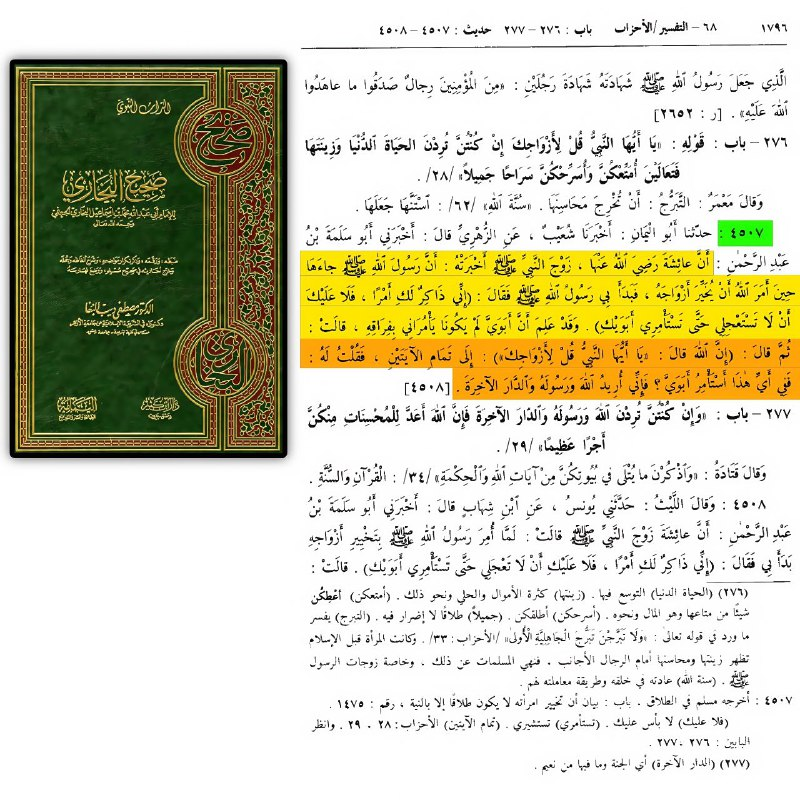 التراث النبوي
صحيح
صحيح البخاري
للإمام أبي عبد الله محمد بن إسماعيل البخاري الجعفي
رحمه الله تعالى
الدكتور مصطفى ديب البغا
البخاري
١٧٩٦ ٦٨ – التفسير/الأحزاب باب : ٢٧٦ – ٢٧٧ حديث : ٤٥٠٧ – ٤٥٠٨
الَّذِي جَعَلَ رَسُولُ اللهِ ﷺ شَهَادَتَهُ شَهَادَةَ رَجُلَيْنِ : «مِنَ الْمُؤْمِنِينَ رِجالٌ صَدَقُوا ما عاهَدُوا
اللهَ عَلَيْهِ» . [ر : ٢٦٥٢]
٢٧٦ – باب : قَوْلِهِ : «يَا أَيُّهَا النَّبِيُّ قُلْ لِأَزْوَاجِكَ إِنْ كُنْتُنَّ تُرِدْنَ الحَيَاةَ الدُّنْيَا وَزِينَتَهَا
فَتَعَالَيْنَ أُمَتِّعْكُنَّ وَأُسَرِّحْكُنَّ سَرَاحًا جَمِيلاً» /٢٨/ .
وَقالَ مَعْمَرٌ : التَّبَرُّجُ : أَنْ تُخْرِجَ مَحَاسِنَهَا . «سُنَّةَ اللهِ» /٦٢/ : اسْتَنَّهَا جَعَلَهَا .
٤٥٠٧ : حدّثنا أَبُو الْيَمَانِ : أَخْبَرَنَا شُعَيْبٌ ، عَنِ الزُّهْرِيِّ قالَ : أَخْبَرَنِي أَبُو سَلَمَةَ بْنُ
عَبْدِ الرَّحْمٰنِ : أَنَّ عائِشَةَ رَضِيَ اللهُ عَنْهَا ، زَوْجَ النَّبِيِّ ﷺ أَخْبَرَتْهُ : أَنَّ رَسُولَ اللهِ ﷺ جاءَهَا
حِينَ أَمَرَ اللهُ أَنْ يُخَيِّرَ أَزْوَاجَهُ ، فَبَدَأَ بِي رَسُولُ اللهِ ﷺ فَقَالَ : (إِنِّي ذَاكِرٌ لَكِ أَمْرًا ، فَلَا عَلَيْكِ
أَنْ لَا تَسْتَعْجِلِي حَتَّى تَسْتَأْمِرِي أَبَوَيْكِ) . وَقَدْ عَلِمَ أَنَّ أَبَوَيَّ لَمْ يَكُونَا يَأْمُرَانِي بِفِرَاقِهِ ، قالَتْ :
ثُمَّ قالَ : (إِنَّ اللهَ قالَ : «يَا أَيُّهَا النَّبِيُّ قُلْ لِأَزْوَاجِكَ») : إِلَى تَمَامِ الآيَتَيْنِ ، فَقُلْتُ لَهُ :
فَفِي أَيِّ هٰذَا أَسْتَأْمِرُ أَبَوَيَّ ؟ فَإِنِّي أُرِيدُ اللهَ وَرَسُولَهُ وَالدَّارَ الآخِرَةَ . [٤٥٠٨]
٢٧٧ – باب : «وَإِنْ كُنْتُنَّ تُرِدْنَ اللهَ وَرَسُولَهُ وَالدَّارَ الآخِرَةَ فَإِنَّ اللهَ أَعَدَّ لِلْمُحْسِنَاتِ مِنْكُنَّ
أَجْرًا عَظِيمًا» /٢٩/ .
وَقالَ قَتَادَةُ : «وَاذْكُرْنَ ما يُتْلَى فِي بُيُوتِكُنَّ مِنْ آيَاتِ اللهِ وَالْحِكْمَةِ» /٣٤/ : الْقُرْآنِ وَالسُّنَّةِ .
٤٥٠٨ : وَقالَ اللَّيْثُ : حَدَّثَنِي يُونُسُ ، عَنِ ابْنِ شِهَابٍ قالَ : أَخْبَرَنِي أَبُو سَلَمَةَ بْنُ
عَبْدِ الرَّحْمٰنِ : أَنَّ عائِشَةَ زَوْجَ النَّبِيِّ ﷺ قالَتْ : لَمَّا أُمِرَ رَسُولُ اللهِ ﷺ بِتَخْيِيرِ أَزْوَاجِهِ
بَدَأَ بِي فَقَالَ : (إِنِّي ذَاكِرٌ لَكِ أَمْرًا ، فَلَا عَلَيْكِ أَنْ لَا تَعْجَلِي حَتَّى تَسْتَأْمِرِي أَبَوَيْكِ) . قالَتْ :
(٢٧٦) (الحياة الدنيا) التوسع فيها . (زينتها) كثرة الأموال والحلي ونحو ذلك . (أمتعكن) أعطكن
شيئًا من متاعها وهو المال ونحوه . (أسرحكن) أطلقكن . (جميلاً) طلاقًا لا إضرار فيه . (التبرج) يفسر
ما ورد في قوله تعالى : «وَلَا تَبَرَّجْنَ تَبَرُّجَ الْجَاهِلِيَّةِ الْأُولَى» /الأحزاب : ٣٣/ . وكانت المرأة قبل الإسلام
تظهر زينتها ومحاسنها أمام الرجال الأجانب . فنهي المسلمات عن ذلك . وخاصة زوجات الرسول
ﷺ . (سنة الله) عادته في خلقه وطريقة معاملته لهم .
٤٥٠٧ : أخرجه مسلم في الطلاق . باب : بيان أن تخيير امرأته لا يكون طلاقًا إلا بالنية ، رقم : ١٤٧٥ .
(فلا عليك) لا بأس عليك . (تستأمري) تستشيري . (تمام الآيتين) الأحزاب : ٢٨ . ٢٩ . وانظر
البابين : ٢٧٦ ، ٢٧٧ .
(٢٧٧) (الدار الآخرة) أي الجنة وما فيها من نعيم .